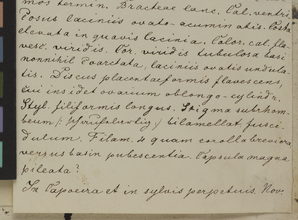 mos termin. Bracteae lanc. Cal. ventri
cosus laciniis ovato-acuminatis. Costa
elevata in quavis lacinia. Color cal. fla
vesc. viridis. Cor. viridis tubulosa basi
nonnihil coarctata, laciniis ovatis undula
tis. Discus placentaeformis flavescens,
cui insidet ovarium oblongo-cylindr.
Styl. filiformis longus. Stigma subrhom
beum / / bilamellat fusci
dulum. Filam. 4 quam corolla breviora
versus basin pubescentia. Capsula magna
pileata?
In Capoeira et in sylvis perpetuis. Nov